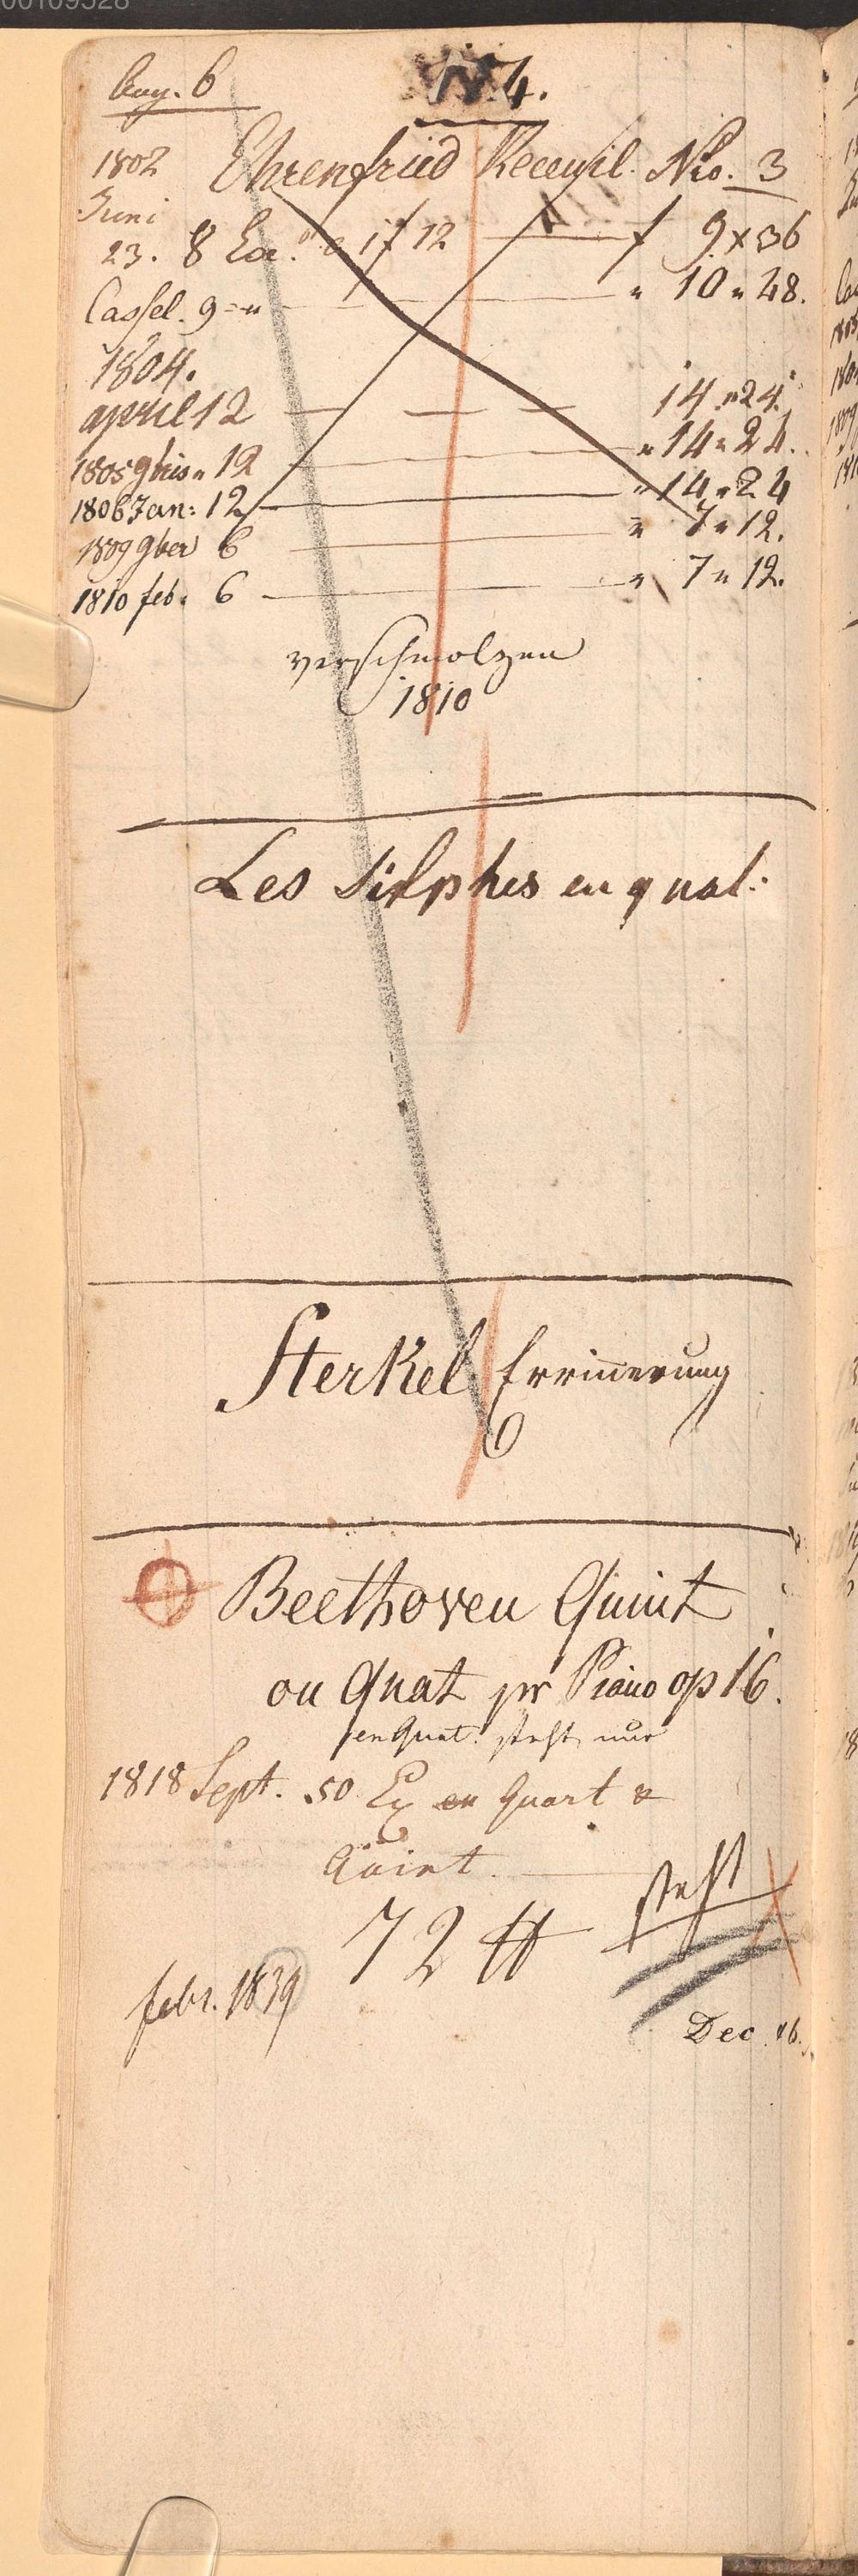 00109528
Aug. 6
N 4.
1802 Ehrenfried Receuil. Nro. 3
Juni
23. 8 Ex. a 1 f 12 — f 9 x 36
Cassel. 9 = " — " 10 " 48.
1804.
april 12 — — — 14 " 24.
1805 9bris " 12 — " 14 " 24.
1806 Jan: 12 — " 14 " 24
1809 9ber 6 — " 7 " 12.
1810 feb. 6 — " 7 " 12.
verschmolzen
1810
Les Silphes en quat:
Sterkel Errinerung
6
Beethoven Quint
ou Quat pr Piano op 16.
en Quat. steht nur
1818 Sept. 50 Ex en Quart &
Quint.
72 ℔ steht
febr. 1839
Dec 46.